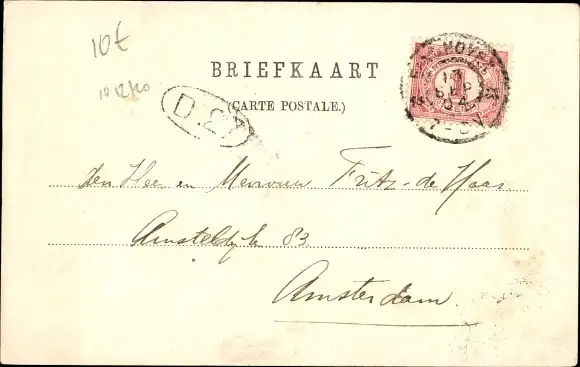 10€
10 12/20
BRIEFKAART
(CARTE POSTALE.)
D. 2
1
SEP
04
den Heer en Mevrouw Fritz de Haas
Amsteldijk 83
Amsterdam.